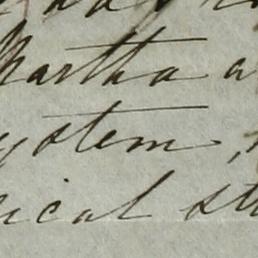 Martha a
ystem,
ical st